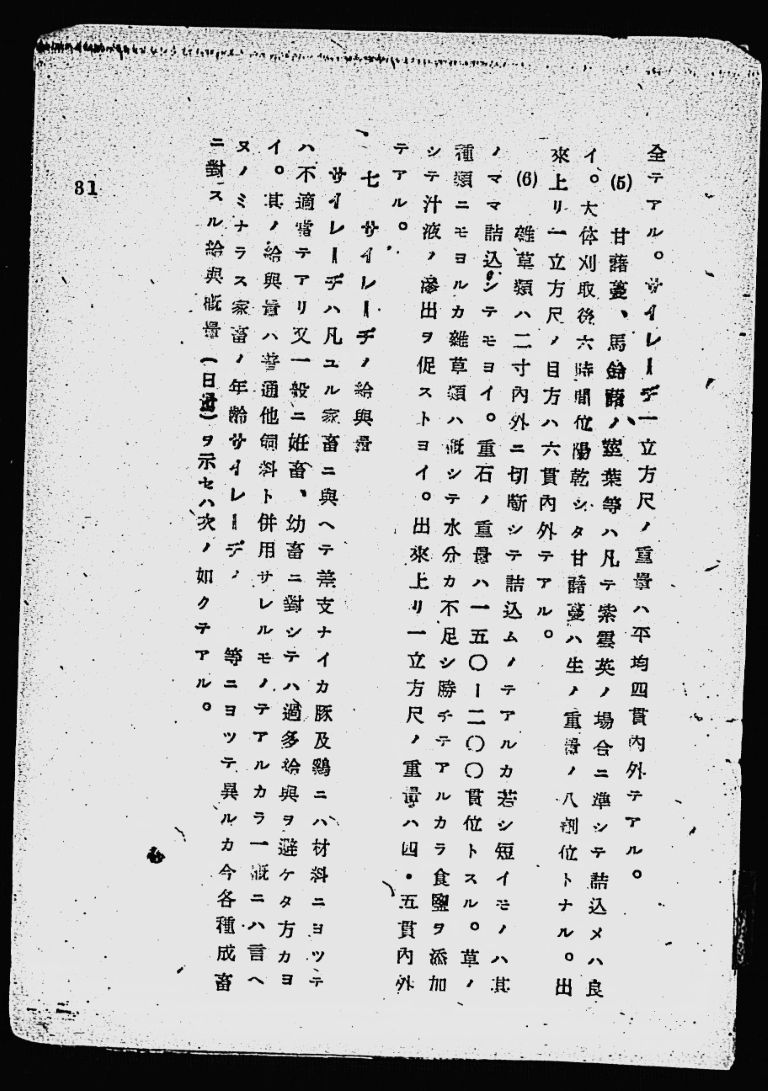 全テアル。サイレーヂ一立方尺ノ重量ハ平均四貫內外テアル。
(5) 甘藷蔓、馬鈴藷ノ莖葉等ハ凡テ紫雲英ノ場合ニ準シテ詰込メハ良
イ。大体刈取後六時間位陽乾シタ甘藷蔓ハ生ノ重量ノ八割位トナル。出
來上リ一立方尺ノ目方ハ六貫內外テアル。
(6) 雜草類ハ二寸內外ニ切斷シテ詰込ムノテアルカ若シ短イモノハ其
ノママ詰込シテモヨイ。重石ノ重量ハ一五〇ー二〇〇貫位トスル。草ノ
種類ニモヨルカ雜草類ハ槪シテ水分カ不足シ勝チテアルカラ食鹽ヲ添加
シテ汁液ノ滲出ヲ促ストヨイ。出來上リ一立方尺ノ重量ハ四・五貫內外
テアル。
七 サイレーヂノ給與量
サイレーヂハ凡ユル家畜ニ與ヘテ差支ナイカ豚及鷄ニハ材料ニヨツテ
ハ不適當テアリ又一般ニ妊畜、幼畜ニ對シテハ過多給與ヲ避ケタ方カヨ
イ。其ノ給與量ハ普通他飼料ト併用サレルモノテアルカラ一槪ニハ言ヘ
ヌノミナラス家畜ノ年齡サイレーヂノ 等ニヨツテ異ルカ今各種成畜
ニ對スル給與槪量(日量)ヲ示セハ次ノ如クテアル。
81